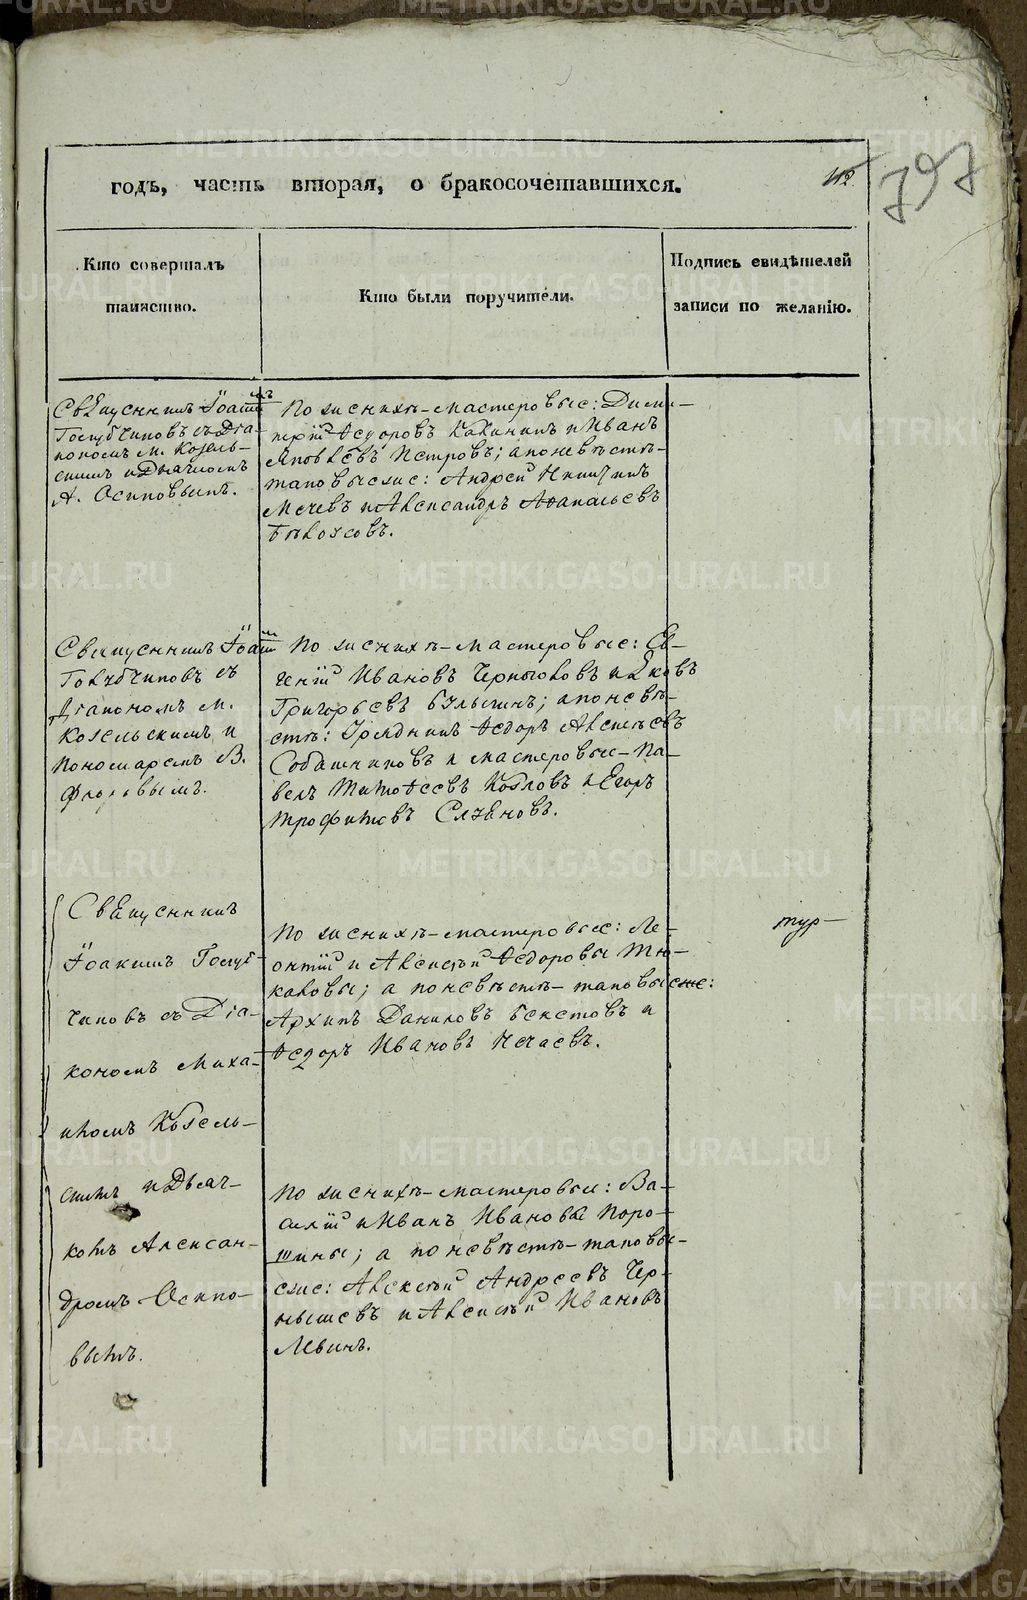 годъ, часть вторая, о бракосочетавшихся.
797
Кто совершалъ
таинство.
Кто были поручители.
Подпись свидѣтелей
записи по желанію.
Священникъ Іоакимъ
Голубчиковъ съ Діа-
кономъ М. Козель-
скимъ и Дьячкомъ
А. Осиповымъ.
По женихѣ-мастеровые: Дими-
трій Ѳедоровъ Калинин и Иванъ
Яковлевъ Петровъ; а по невѣстѣ-
таковые же: Андрей Никитинъ
и Александръ Аѳанасьевъ
Бѣлоусовъ.
Священникъ Іоаким
Голубчиковъ съ
Діакономъ М.
Козельскимъ и
Пономаремъ В.
Флоровымъ.
По женихѣ-мастеровые: Ев-
геній Ивановъ и Яковъ
Григорьевъ; а по невѣ-
стѣ: Урядникъ Ѳедоръ Алексѣевъ
Собашниковъ и мастеровые-Па-
велъ Тимоѳеевъ Козловъ и Егоръ
Трофимовъ
Священникъ
Іоакимъ Голуб-
чиковъ съ Діа-
кономъ Миха-
иломъ Козель-
скимъ и Дьяч-
комъ Алексан-
дромъ Осипо-
вымъ.
По женихѣ-мастеровые: Ле-
онтій и Алексѣй Ѳедоровы Тю-
каловы; а по невѣстѣ-таковые же:
Архипъ Даниловъ Бекетовъ и
Ѳедоръ Ивановъ Нечаевъ.
По женихѣ-мастеровые: Ва-
силій и Иванъ Ивановы Поро-
шины; а по невѣстѣ-таковы-
е же: Алексѣй Андреевъ Чер-
нышевъ и Алексѣй Ивановъ
Левинъ.
METRIKI.GASO-URAL.RU